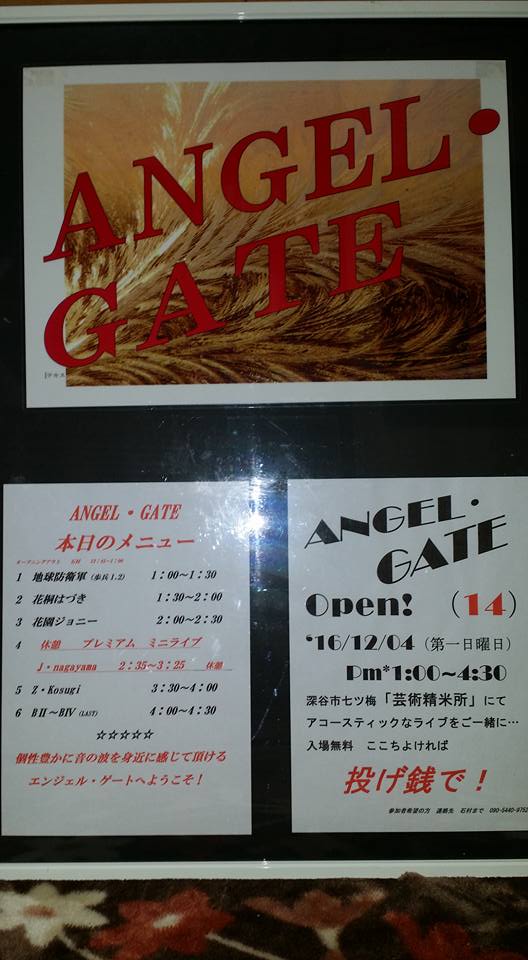 ANGEL・
GATE
ANGEL・GATE
本日のメニュー
1 地球防衛軍(歩兵1.2) 1:00~1:30
2 花桐はづき 1:30~2:00
3 花園ジョニー 2:00~2:30
4 休憩 プレミアム ミニライブ
J・nagayama 2:35~3:25 休憩
5 Z・Kosugi 3:30~4:00
6 BⅡ~BⅣ(LAST) 4:00~4:30
☆☆☆☆☆
個性豊かに音の波を身近に感じて頂ける
エンジェル・ゲートへようこそ!
ANGEL・
GATE
Open! (14)
‘16/12/04(第一日曜日)
Pm*1:00~4:30
深谷市七ツ梅「芸術精米所」にて
アコースティックなライブをご一緒に…
入場無料 ここちよければ
投げ銭で!
参加者希望の方 連絡先 石村まで 090-5440-9752